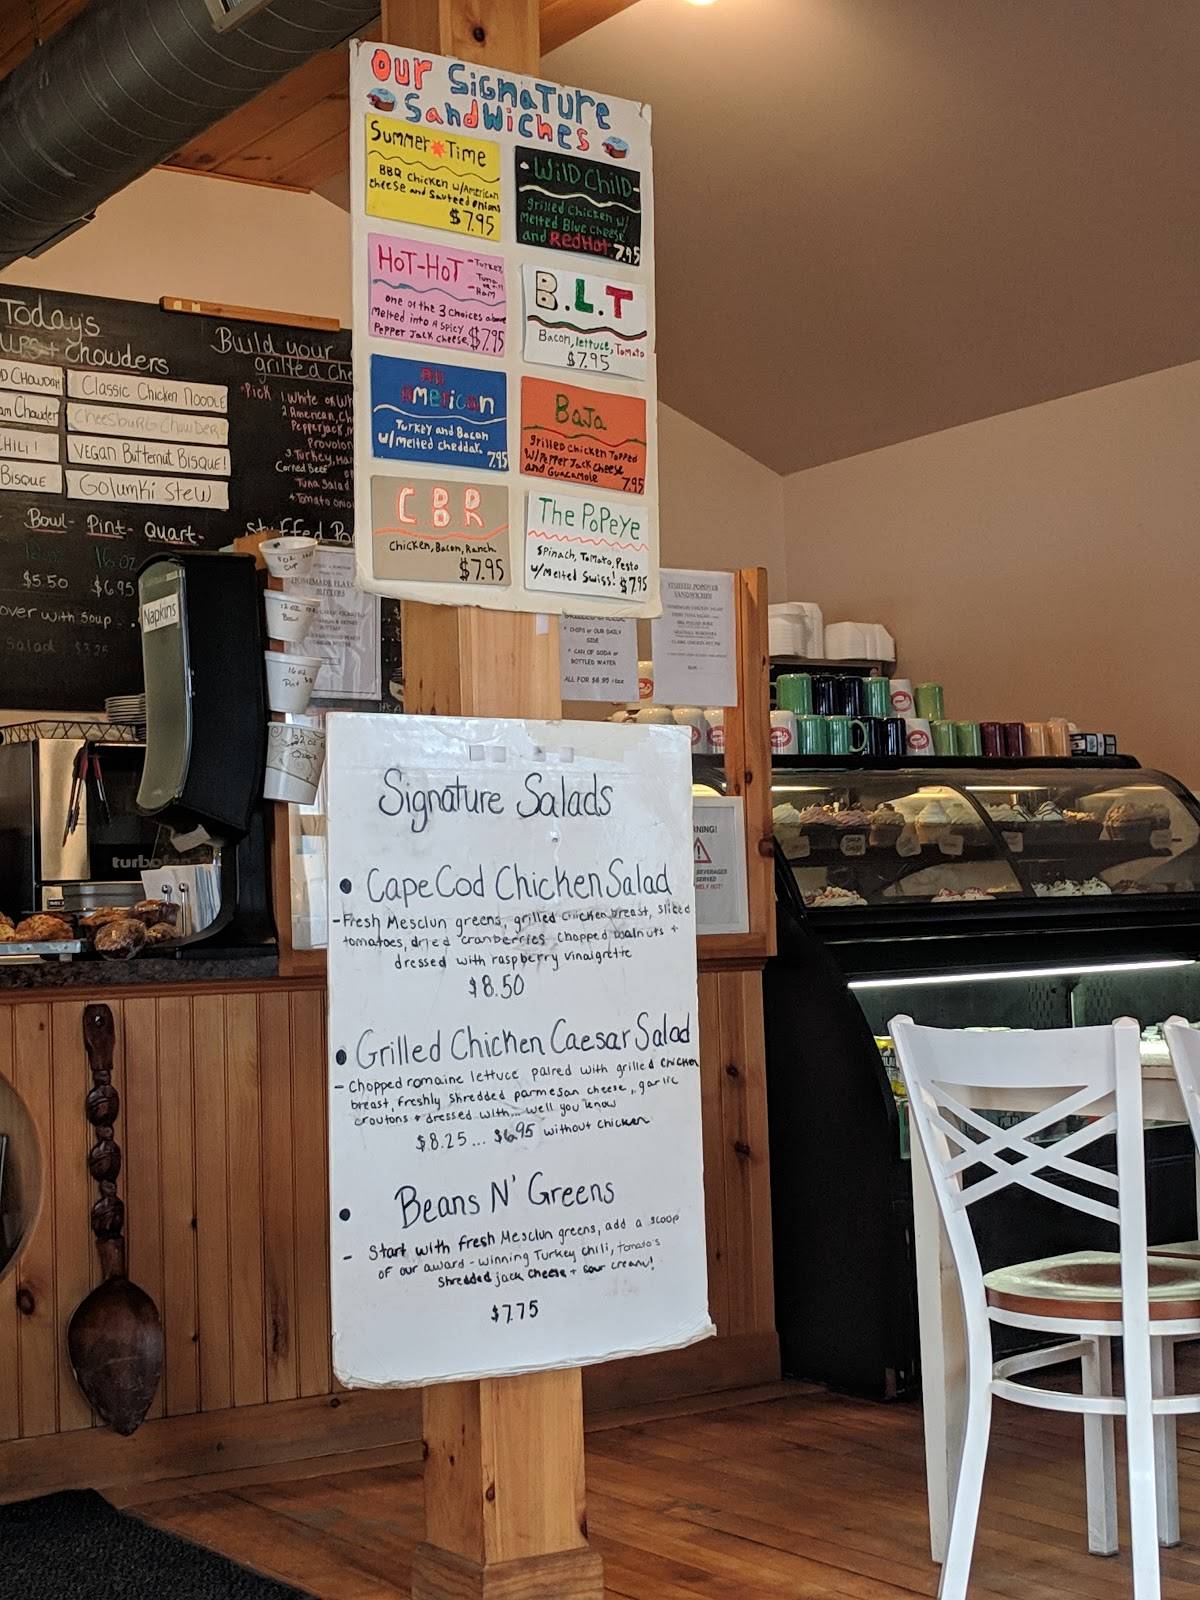 Our Signature
Sandwiches
Summer Time
BBQ Chicken w/American
cheese and Sauteed onions
$7.95
-Wild Child-
grilled chicken w/
Melted Blue cheese
and RedHot 7.95
HOT-HOT
-Turkey
Tuna
-Ham
one of the 3 choices above
Melted into A Spicy
Pepper Jack cheese. $7.95
B.L.T
Bacon, lettuce, Tomato
$7.95
All
American
Turkey and Bacon
w/melted cheddar. 7.95
BaJa
grilled chicken Topped
w/Pepper Jack Cheese
and Guacamole 7.95
CBR
Chicken, Bacon, Ranch.
$7.95
The PoPeye
Spinach, Tomato, Pesto
w/Melted Swiss! $7.95
Today's
+ Chowders
Classic Chicken Noodle
Cheesburg Chowder
Vegan Butternut Bisque!
Golumki Stew
CHILI!
Bisque
Bowl- Pint- Quart-
16 oz
$5.50 $6.95
over with soup
Salad $3.25
Build your
grilled che
Pick 1. White or Wh
2. American, Ch
Pepperjack,
Provolon
3. Turkey, Ha
Corned Beef
Tuna Salad
+ Tomato onio
stuffed Po
Napkins
8 oz
cup
12 oz
Bowl
16 oz
Pint
32 oz
HOMEMADE
* CHIPS or OUR DAILY
SIDE
* CAN OF SODA or
BOTTLED WATER
ALL FOR $8.95 +tax
STUFFED POPOVER
SANDWICHES
turbofan
BEVERAGES
SERVED
Signature Salads
• Cape Cod Chicken Salad
- Fresh Mesclun greens, grilled chicken breast, sliced
tomatoes, dried cranberries chopped walnuts +
dressed with raspberry vinaigrette
$8.50
• Grilled Chicken Caesar Salad
- Chopped romaine lettuce paired with grilled chicken
breast, freshly shredded parmesan cheese, garlic
croutons + dressed with... well you know
$8.25 ... $6.95 without chicken
• Beans N' Greens
- Start with fresh Mesclun greens, add a scoop
of our award-winning Turkey chili, tomato's
shredded jack cheese + sour cream!
$7.75